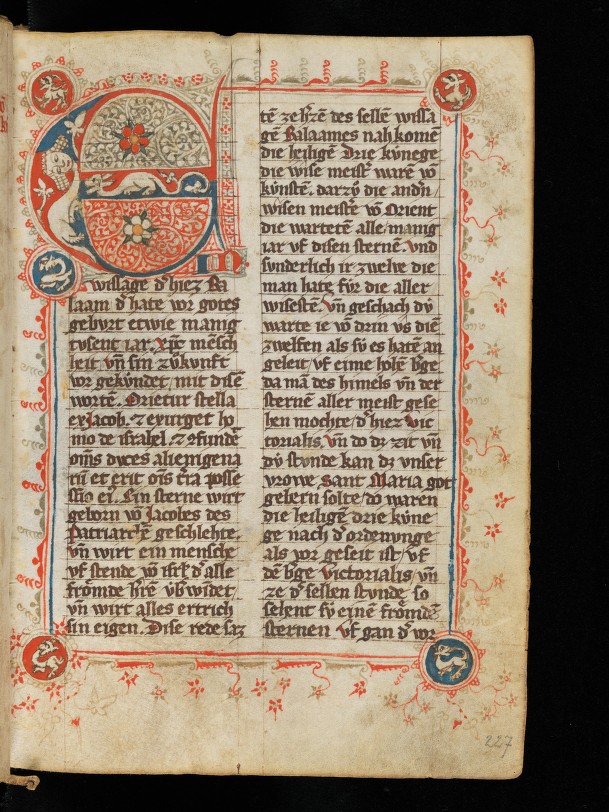 Ein
wissage d͛ hiez Ba
laam d͛ hate vor gotes
gebvrt etwie manig
tvsent iar. xp̄c mēsch
heit vn̄ sin zv̍kvnft
vor gekv̍ndet, mit disē
wortē. Orietur stella
ex Jacob. ⁊ exurget ho
mo de israhel ⁊ ꝯfundet
om̄s dvces alienigena
rū et erit om̄s t̄ra posse
ssio ei᷒. Ein sterne wirt
geborn vō Jacobes des
Patriarch͛ē geschlehte.
vn̄ wirt ein mensche
vf stende vō isrl̄ d͛ alle
frömde h͛re v̍b͛widet,
vn̄ wirt alles ertrich
sin eigen. Dise rede saz
tē ze h͛zē des selbē wissa
gē Balaames nahkomē
die heiligē Drie kv̍nege
die wise meist͛ warē vō
kv̍nstē. darzv̊ die and͛n
wisen meist͛e vō Orient
die wartetē alle, manig
iar vf disen sternē vnd
svnderlich ir zwelve die
man hatē fv̍r die aller
wisestē. vn̄ geschach dv̍
warte ie vō drin vs diē
zwelfen als sv̍ es hatē an
geleit, vf eime hohē b͛ge
da mā des himels vn̄ der
sternē aller meist gese
hen mochte, d͛ hiez vic
torialis, vn̄ do dz zit vn̄
dv̍ stvnde kan dz vnser
vrowe, sant Maria got
gebern solte, do waren
die heiligē drie kv̍ne
ge nach d͛ ordenvnge
als vor geseit ist, vf
dē b͛ge victorialis, vn̄
ze d͛ selben stvnde, so
sehent sv̍ einē frömdē
sternen vf gan d͛ vor
227